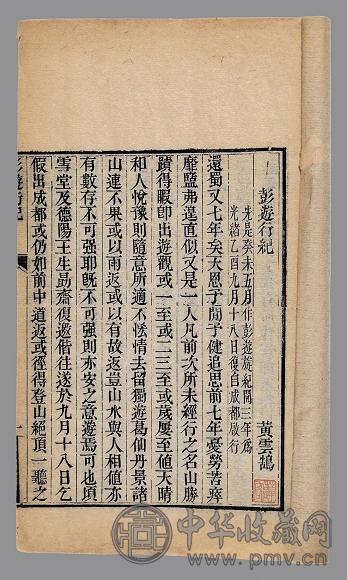 彭遊行紀
黃雲鵠
先是癸未五月作彭遊旋紀閱三年爲
光緒乙酉九月十八日復自成都啟行
還蜀又七年矣天恩予閒予健追思前七年憂勞苦瘁
靡鹽弗遑直似又是一人凡前次所未經行之名山勝
蹟得暇卽出遊觀或一至或二三至或歲屢至值天時
和人悅豫則隨意所適不恡情去畱獨遊葛仙丹景諸
山連不果或以雨返或以有故返豈山水與人相値亦
有數存不可強耶旣不可強則亦安之意遊焉可也頃
雪堂及德陽王生勗齋復邀偕往遂於九月十八日乞
假出成都或仍如前中道返或徑得登山絕頂一聽之
彭遊行紀
一
中华收藏网
www.pmv.cn